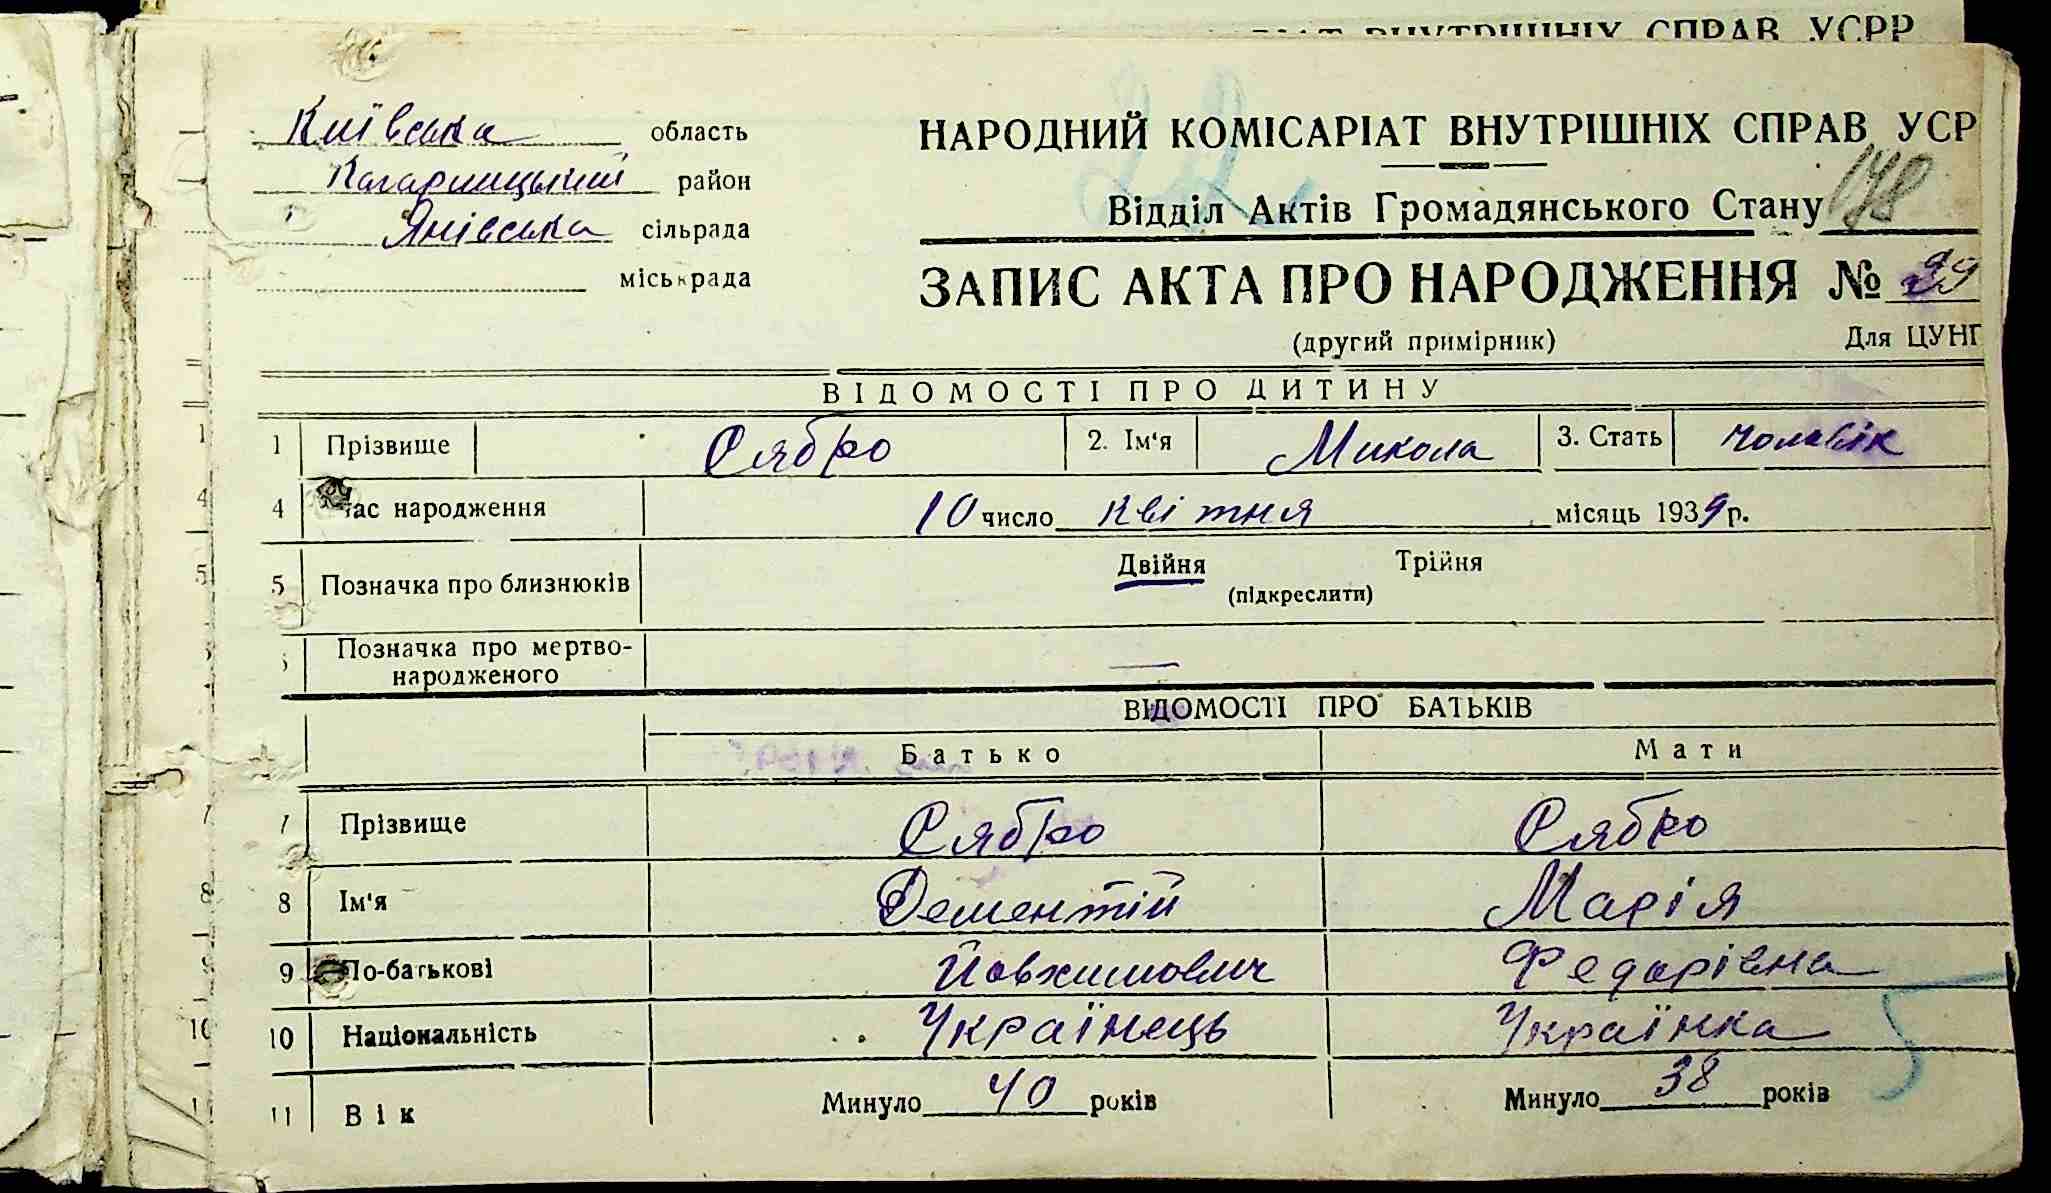 Київська область
Кагарлицький район
Янівська сільрада
міськрада
НАРОДНИЙ КОМІСАРІАТ ВНУТРІШНІХ СПРАВ УСР
Відділ Актів Громадянського Стану 178
ЗАПИС АКТА ПРО НАРОДЖЕННЯ № 39
(другий примірник) Для ЦУНГ
ВІДОМОСТІ ПРО ДИТИНУ
1 Прізвище Сябро 2. Ім'я Микола 3. Стать чоловік
4 Час народження 10 число квітня місяць 1939 р.
5 Позначка про близнюків Двійня Трійня
(підкреслити)
Позначка про мертво-
народженого —
ВІДОМОСТІ ПРО БАТЬКІВ
Батько Мати
7 Прізвище Сябро Сябро
8 Ім'я Дементій Марія
9 По-батькові Йовхимович Федорівна
10 Національність Українець Українка
11 Вік Минуло 40 років Минуло 38 років
5